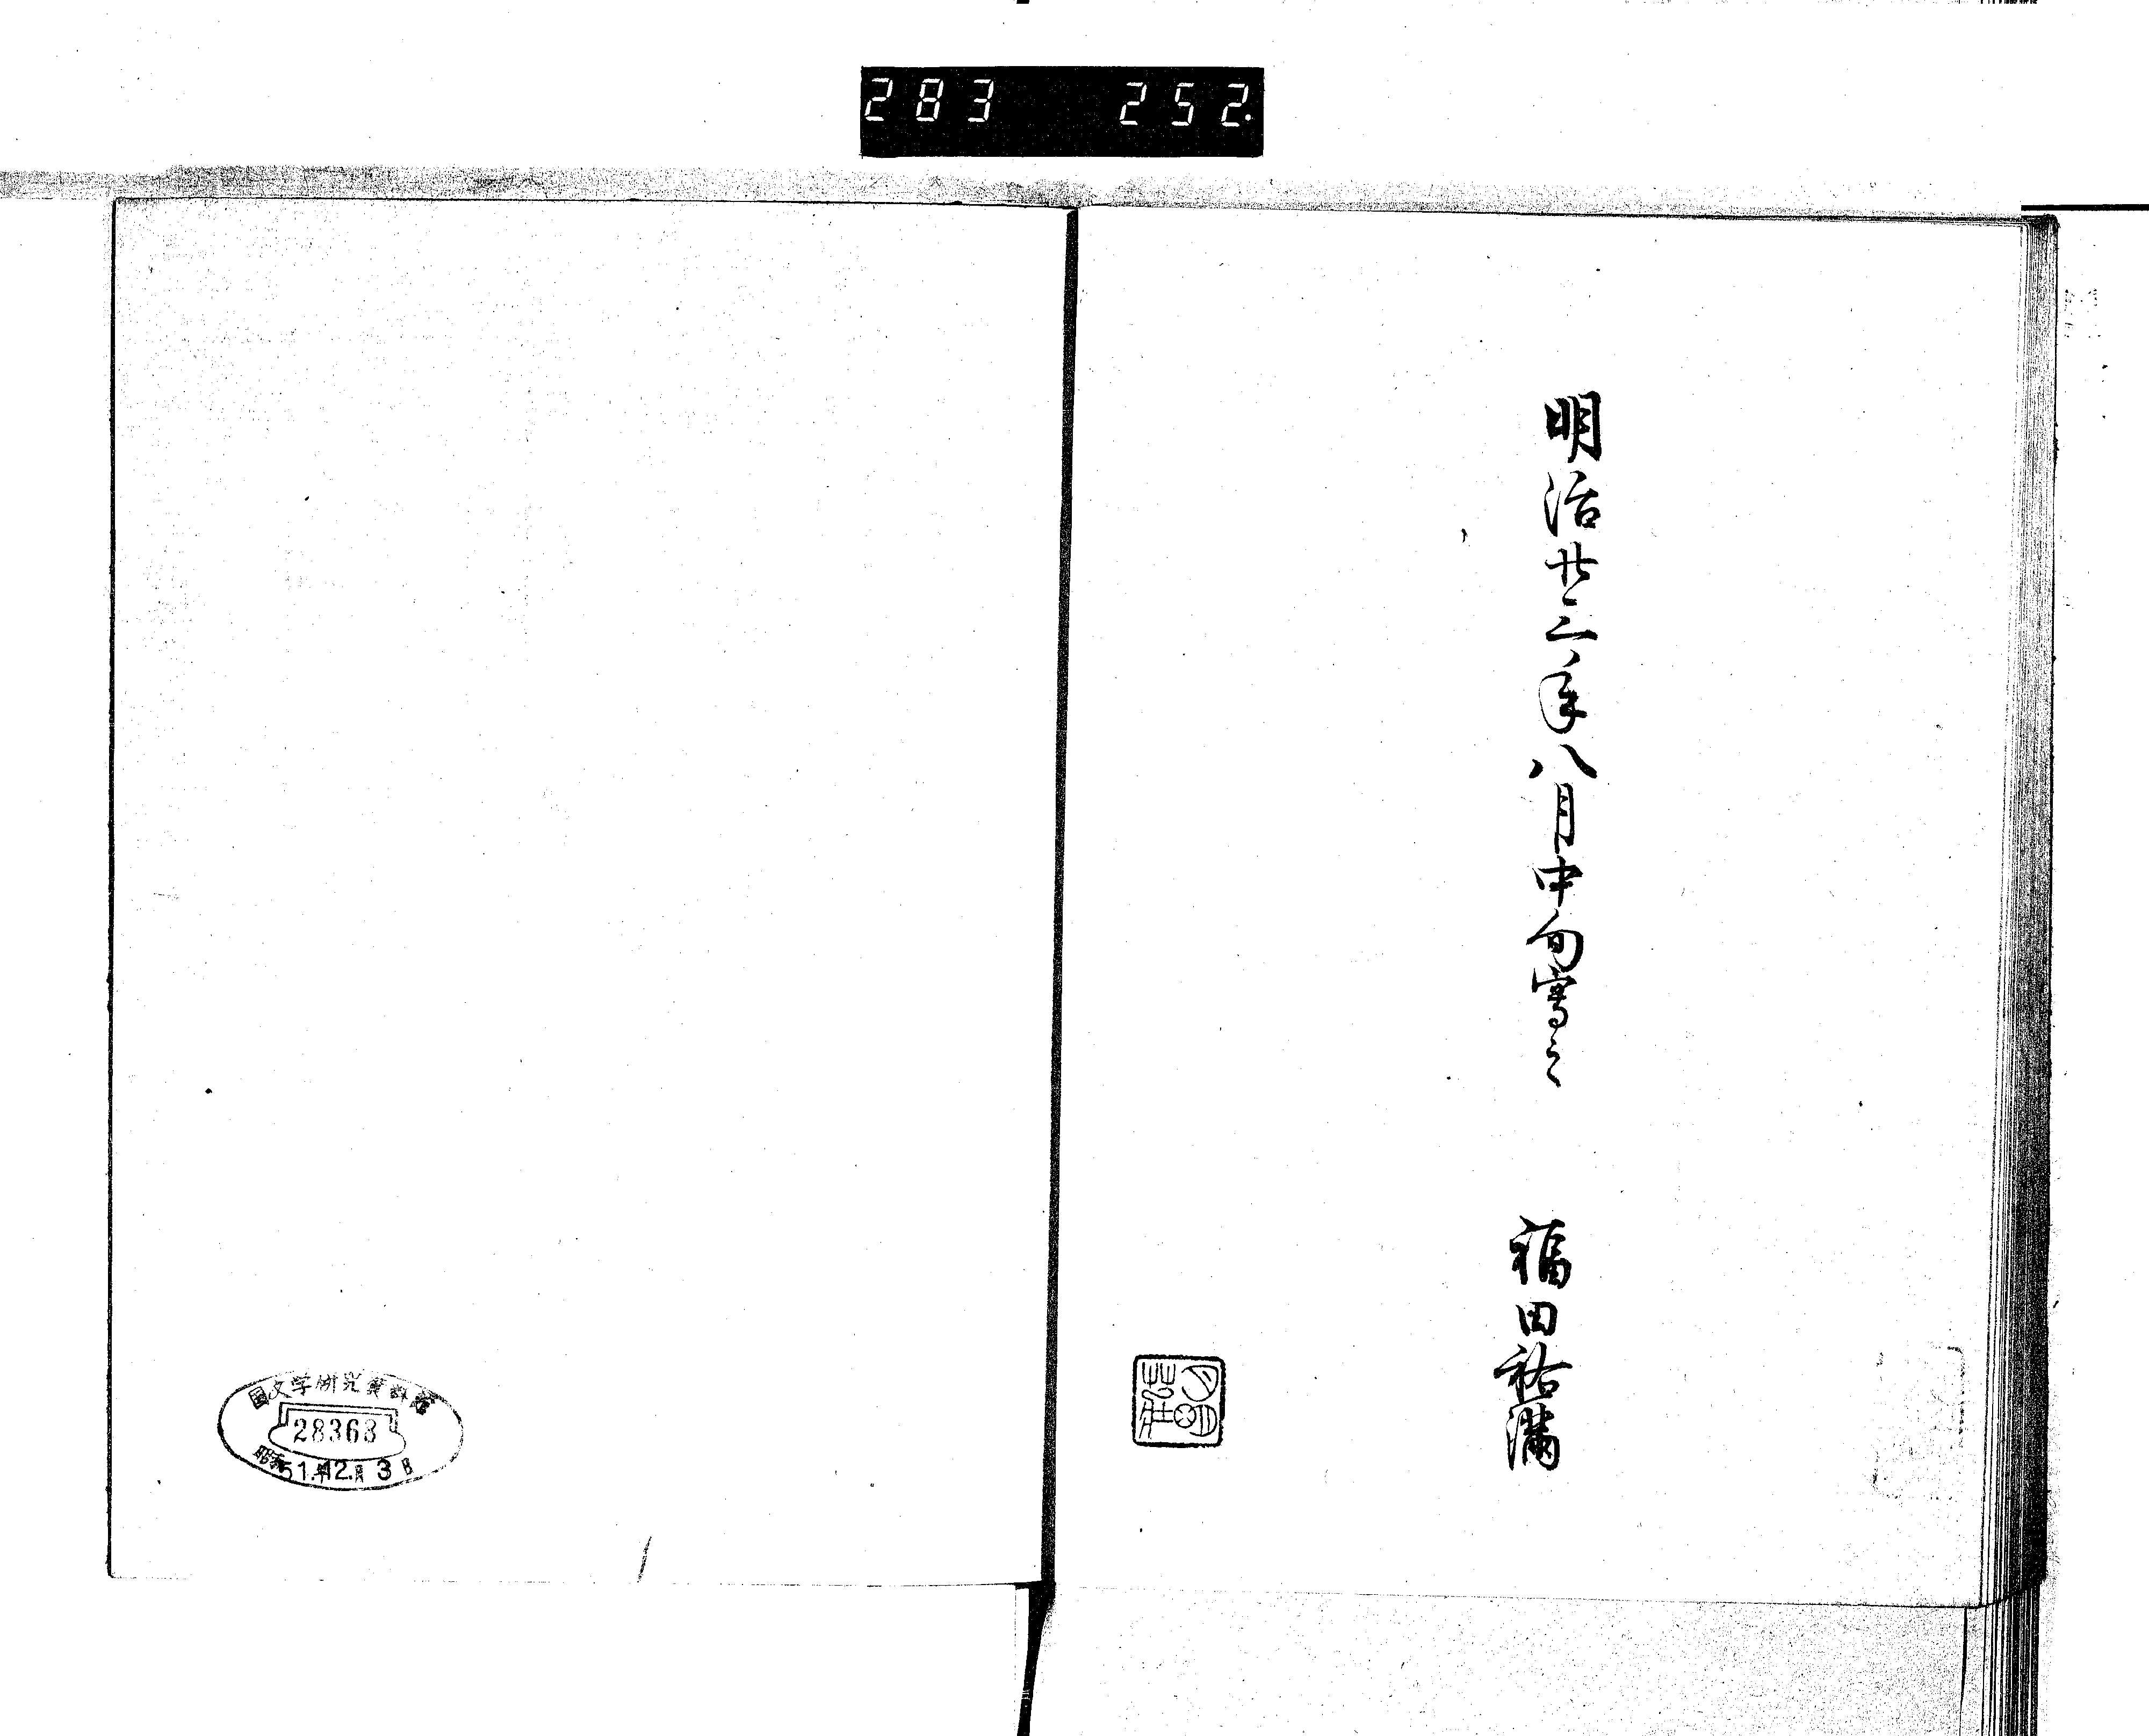 283 252.
明治廿三年八月中旬寫之
福田祐満
月明荘
国文学研究資料館
28363
昭和51.年12.月3日